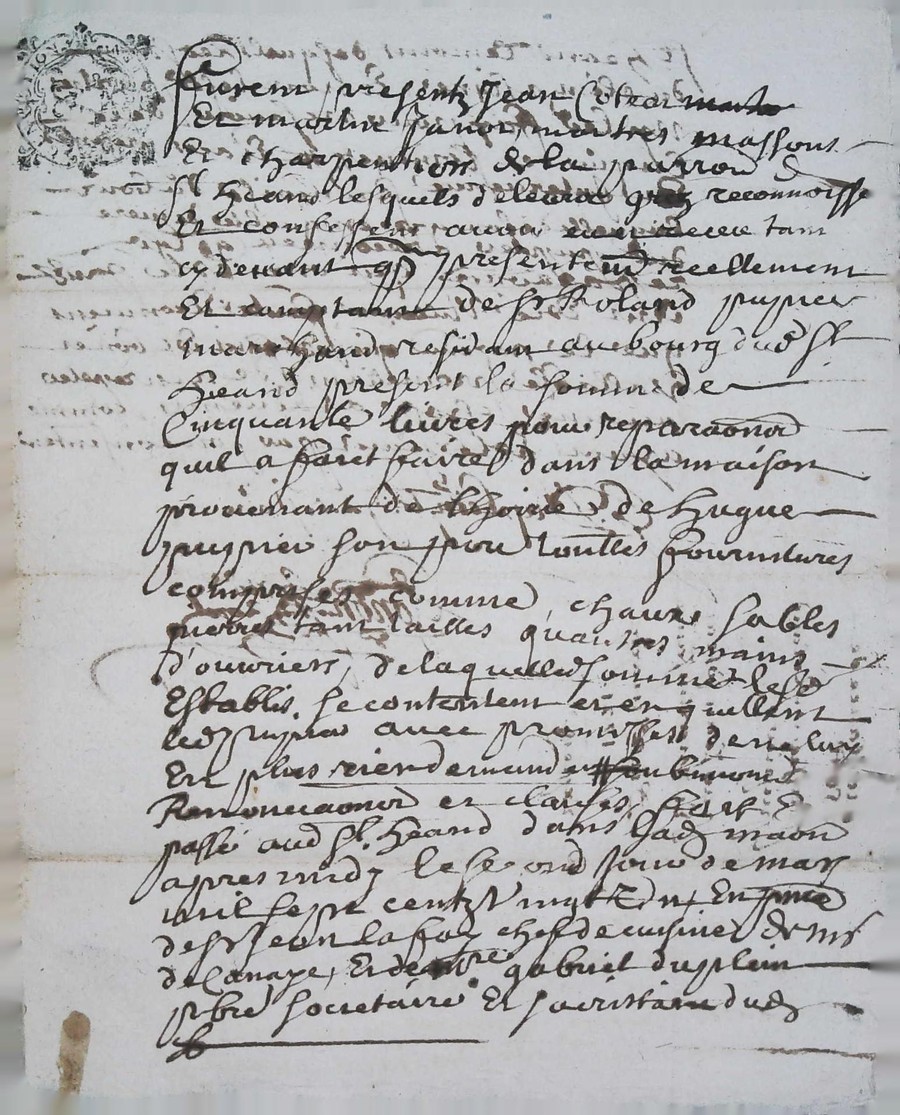 furent presentz Jean Cotear
Et martin Janot, maitres massons
Et charpentiers de la parroē de
St heand lesquels de leur grez reconnoisse
Et confessent avoir eu et receu tant
cy devant qp presentemt reellement
Et comptant de Sr Roland pupier
marchand residant au bourg dud St
heand present la somme de
Cinquante livres pour reparaōns
quil a fait faire dans la maison
provenant de lhoirie de hugue
pupier son pere touttes fournitures
comprises comme chaux sables
pierres tant tailles quautres mains
d'ouvriers, de laquelle somme lesd
Establis se contentent et en quittent
led pupier avec promesses de ne luy
En plus rien demander
Renonciaōns et clauses, fait &
passé aud St heand dans lad maōn
apres midy le second jour de mars
mil sept centz vingt En pnce
de Sr Jean lafay chef de cuisine de mr
de Canaye, Et de gabriel duplein
pbre societaire Et sacristain dud